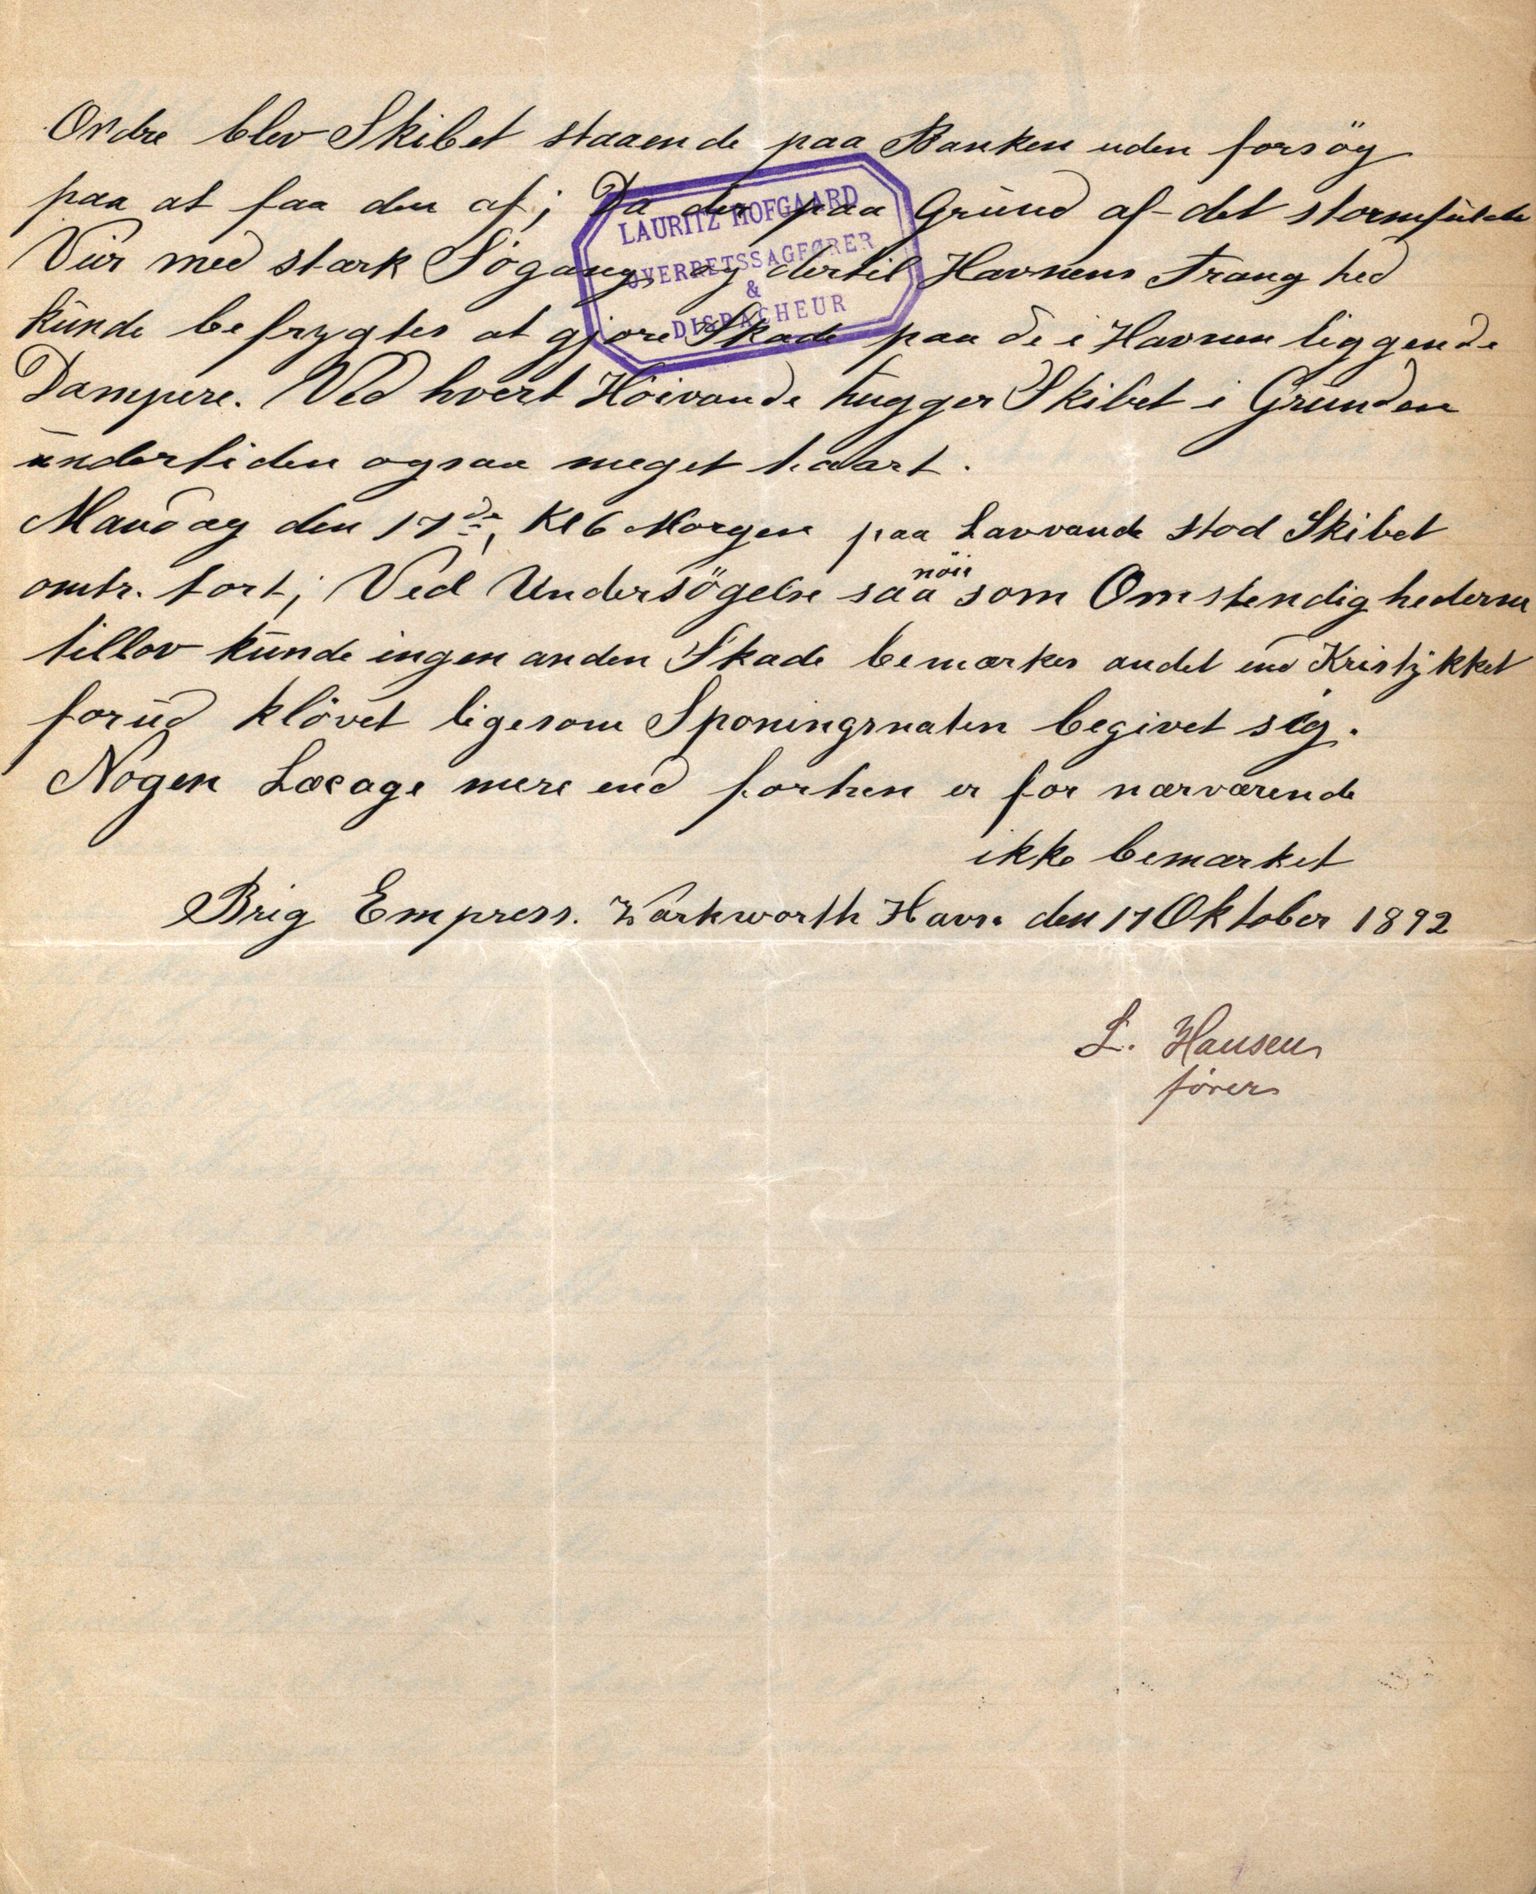 Ordre blev Skibet staaende paa Banken uden forsög
paa at faa den af; Da der paa Grund af det stormfulde
Veir med stærk Søgang, og dertil Havnens Tranghed
kunde befrygtes at gjøre Skade paa de i Havnen liggende
Dampere. Ved hvert Høivande hugger Skibet i Grunden
undertiden ogsaa meget haart.
Mandag den 17de, Kl 6 Morgen paa Lavvande stod Skibet
omtr. tørt; Ved Undersögelse saa nöie som Omstendighederne
tillov kunde ingen anden Skade bemærkes andet end Kristykket
forud klövet ligesom Sponingsnaten begivet sig.
Nogen Læcage mere end forhen er for nærværende
ikke bemærket
Brig Empress. Warkworth Havn den 17 Oktober 1892
L. Hansen
fører
LAURITZ HOFGAARD
OVERRETSSAGFØRER
&
DISPACHEUR